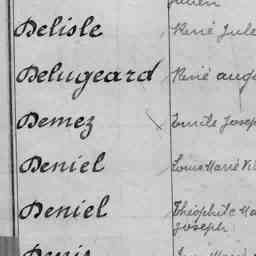 Delisle René Jule
Delugeard René aug
Demez Emile Josep
Deniel Louis Marie Vi
Deniel Théophile Ma
Joseph
Denis